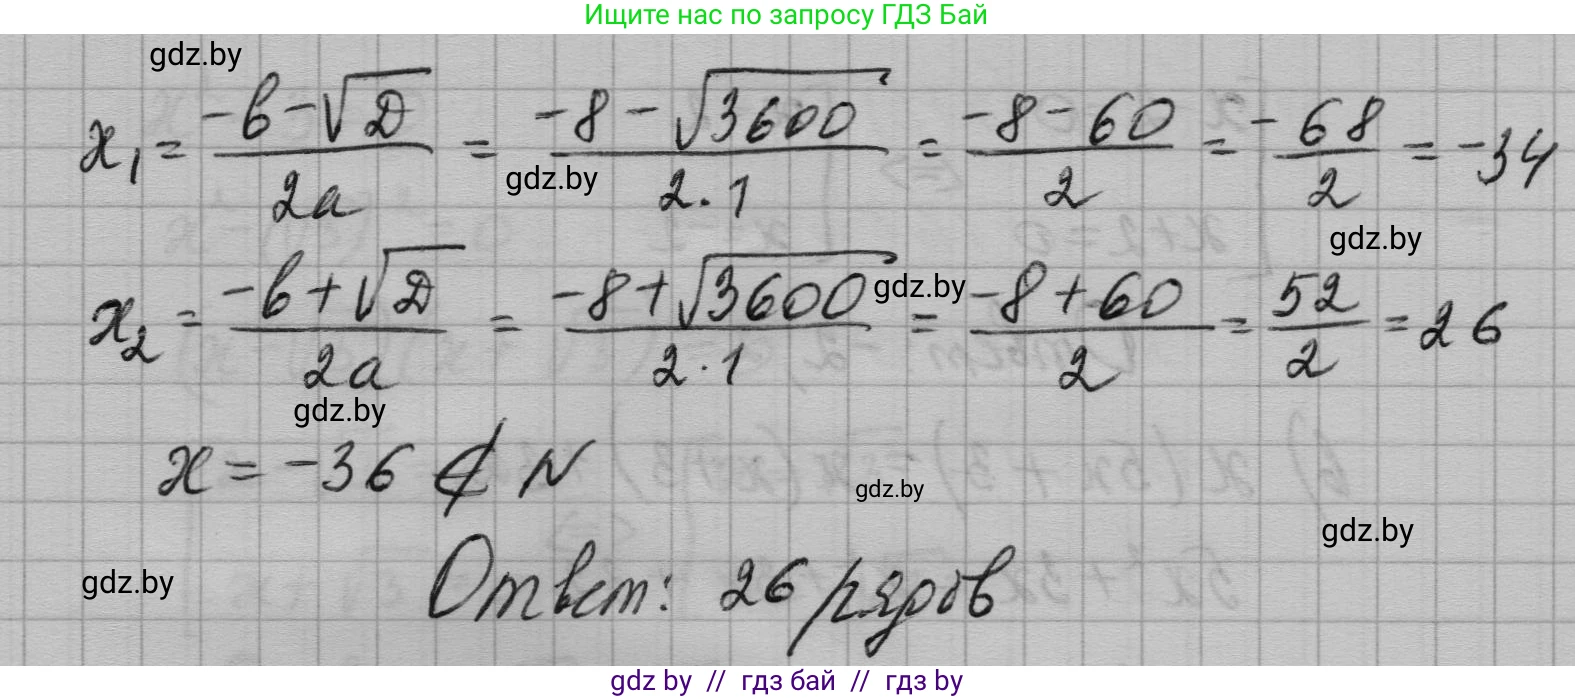 Ищите нас по запросу ГДЗ Бай
gdz.by
x₁ = (-b-√D)/(2a) = (-8-√3600)/(2·1) = (-8-60)/2 = -68/2 = -34
gdz.by
gdz.by
x₂ = (-b+√D)/(2a) = (-8+√3600)/(2·1) = (-8+60)/2 = 52/2 = 26
gdz.by
gdz.by
x = -36 ∉ N
gdz.by
gdz.by
gdz.by
Ответ: 26 рядов
gdz by // гдз бай // гдз by